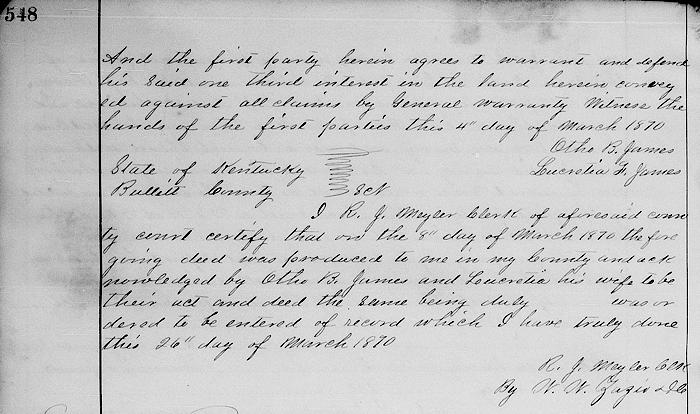 548
And the first party herein agrees to warrant and defend
his said one third interest in the land herein convey
ed against all claims by General Warranty Witness the
hands of the first parties this 4" day of March 1870
Otho B. James
Lucretia F. James
State of Kentucky
Bullitt County Sct
I R. J. Meyler Clerk of aforesaid coun
ty court certify that on the 8" day of March 1870 the fore
going deed was produced to me in my County and ack
nowledged by Otho B. James and Lucretia his wife to be
their act and deed the same being duly was or
dered to be entered of record which I have truly done
this 26" day of March 1870
R. J. Meyler Clk
By W. W.